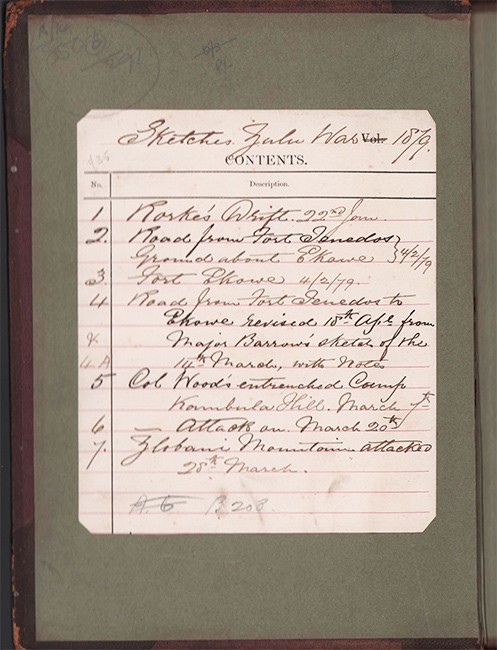 Sketches. Zulu War Vol. 1879.
CONTENTS.
No. Description.
1 Rorke's Drift. 22nd Jan.
2. Road from Fort Tenedos
Ground about Ekowe } 4/2/79
3. Fort Ekowe 4/2/79.
4 Road from Fort Tenedos to
Ekowe revised 18th Apl. from
& Major Barrow's sketch of the
4A 14th March, with Notes
5 Col Wood's entrenched Camp
Kambula Hill. March 7th
6 — Attack on March 20th
7. Zlobani Mountain attacked
28th March.
A. 6 B 208